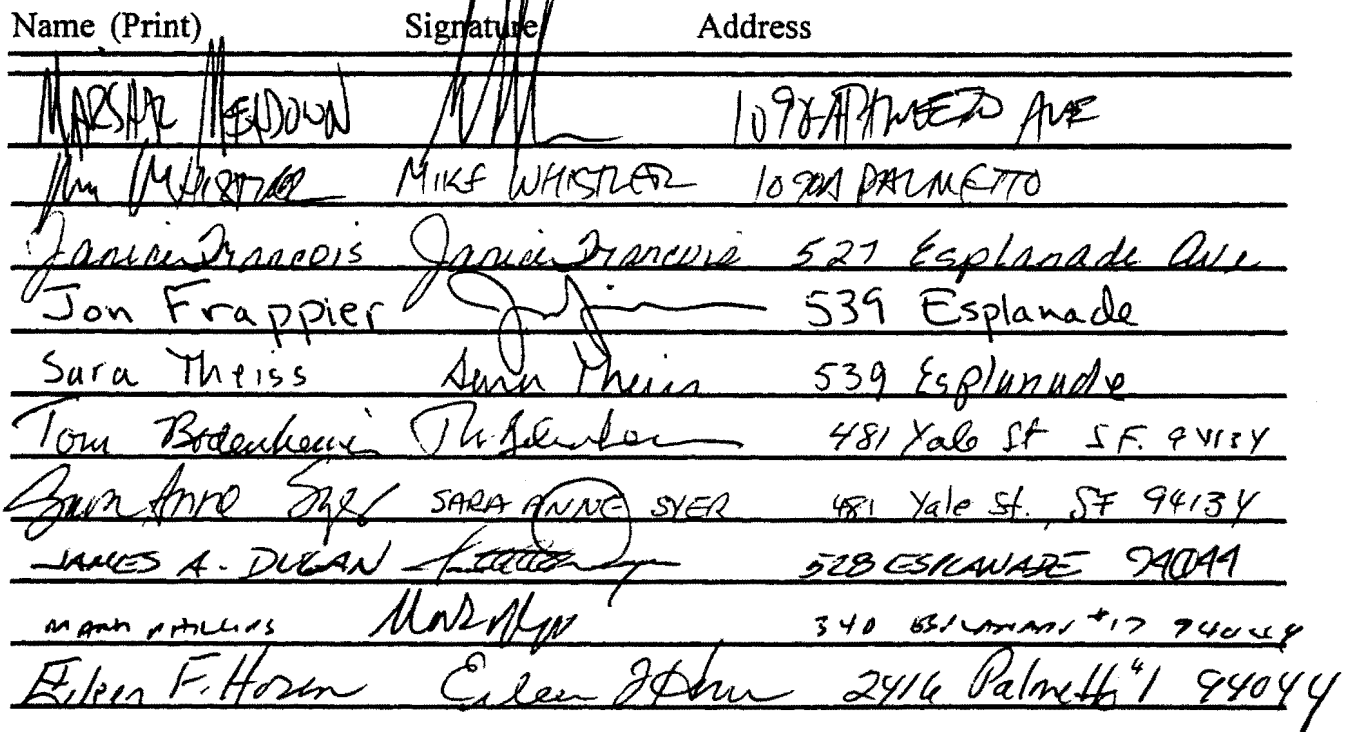 Name (Print) Signature Address
MARSHAL MELDOWN 1098A PALMETTO AVE
WHISTLER MIKE WHISTLER 1090A PALMETTO
Janice Francois Janice Francois 527 Esplanade Ave
Jon Frappier 539 Esplanade
Sara Theiss Sara Theiss 539 Esplanade
Tom Bodenheimer 481 Yale St S.F. 94134
Sara Anne Syer SARA ANNE SYER 481 Yale St. SF 94134
JAMES A. DUGAN 528 ESPLANADE 94044
MARK PHILLIPS 340 ESPLANADE #17 94044
Eileen F. Horn Eileen F Horn 2416 Palmetto #1 94044